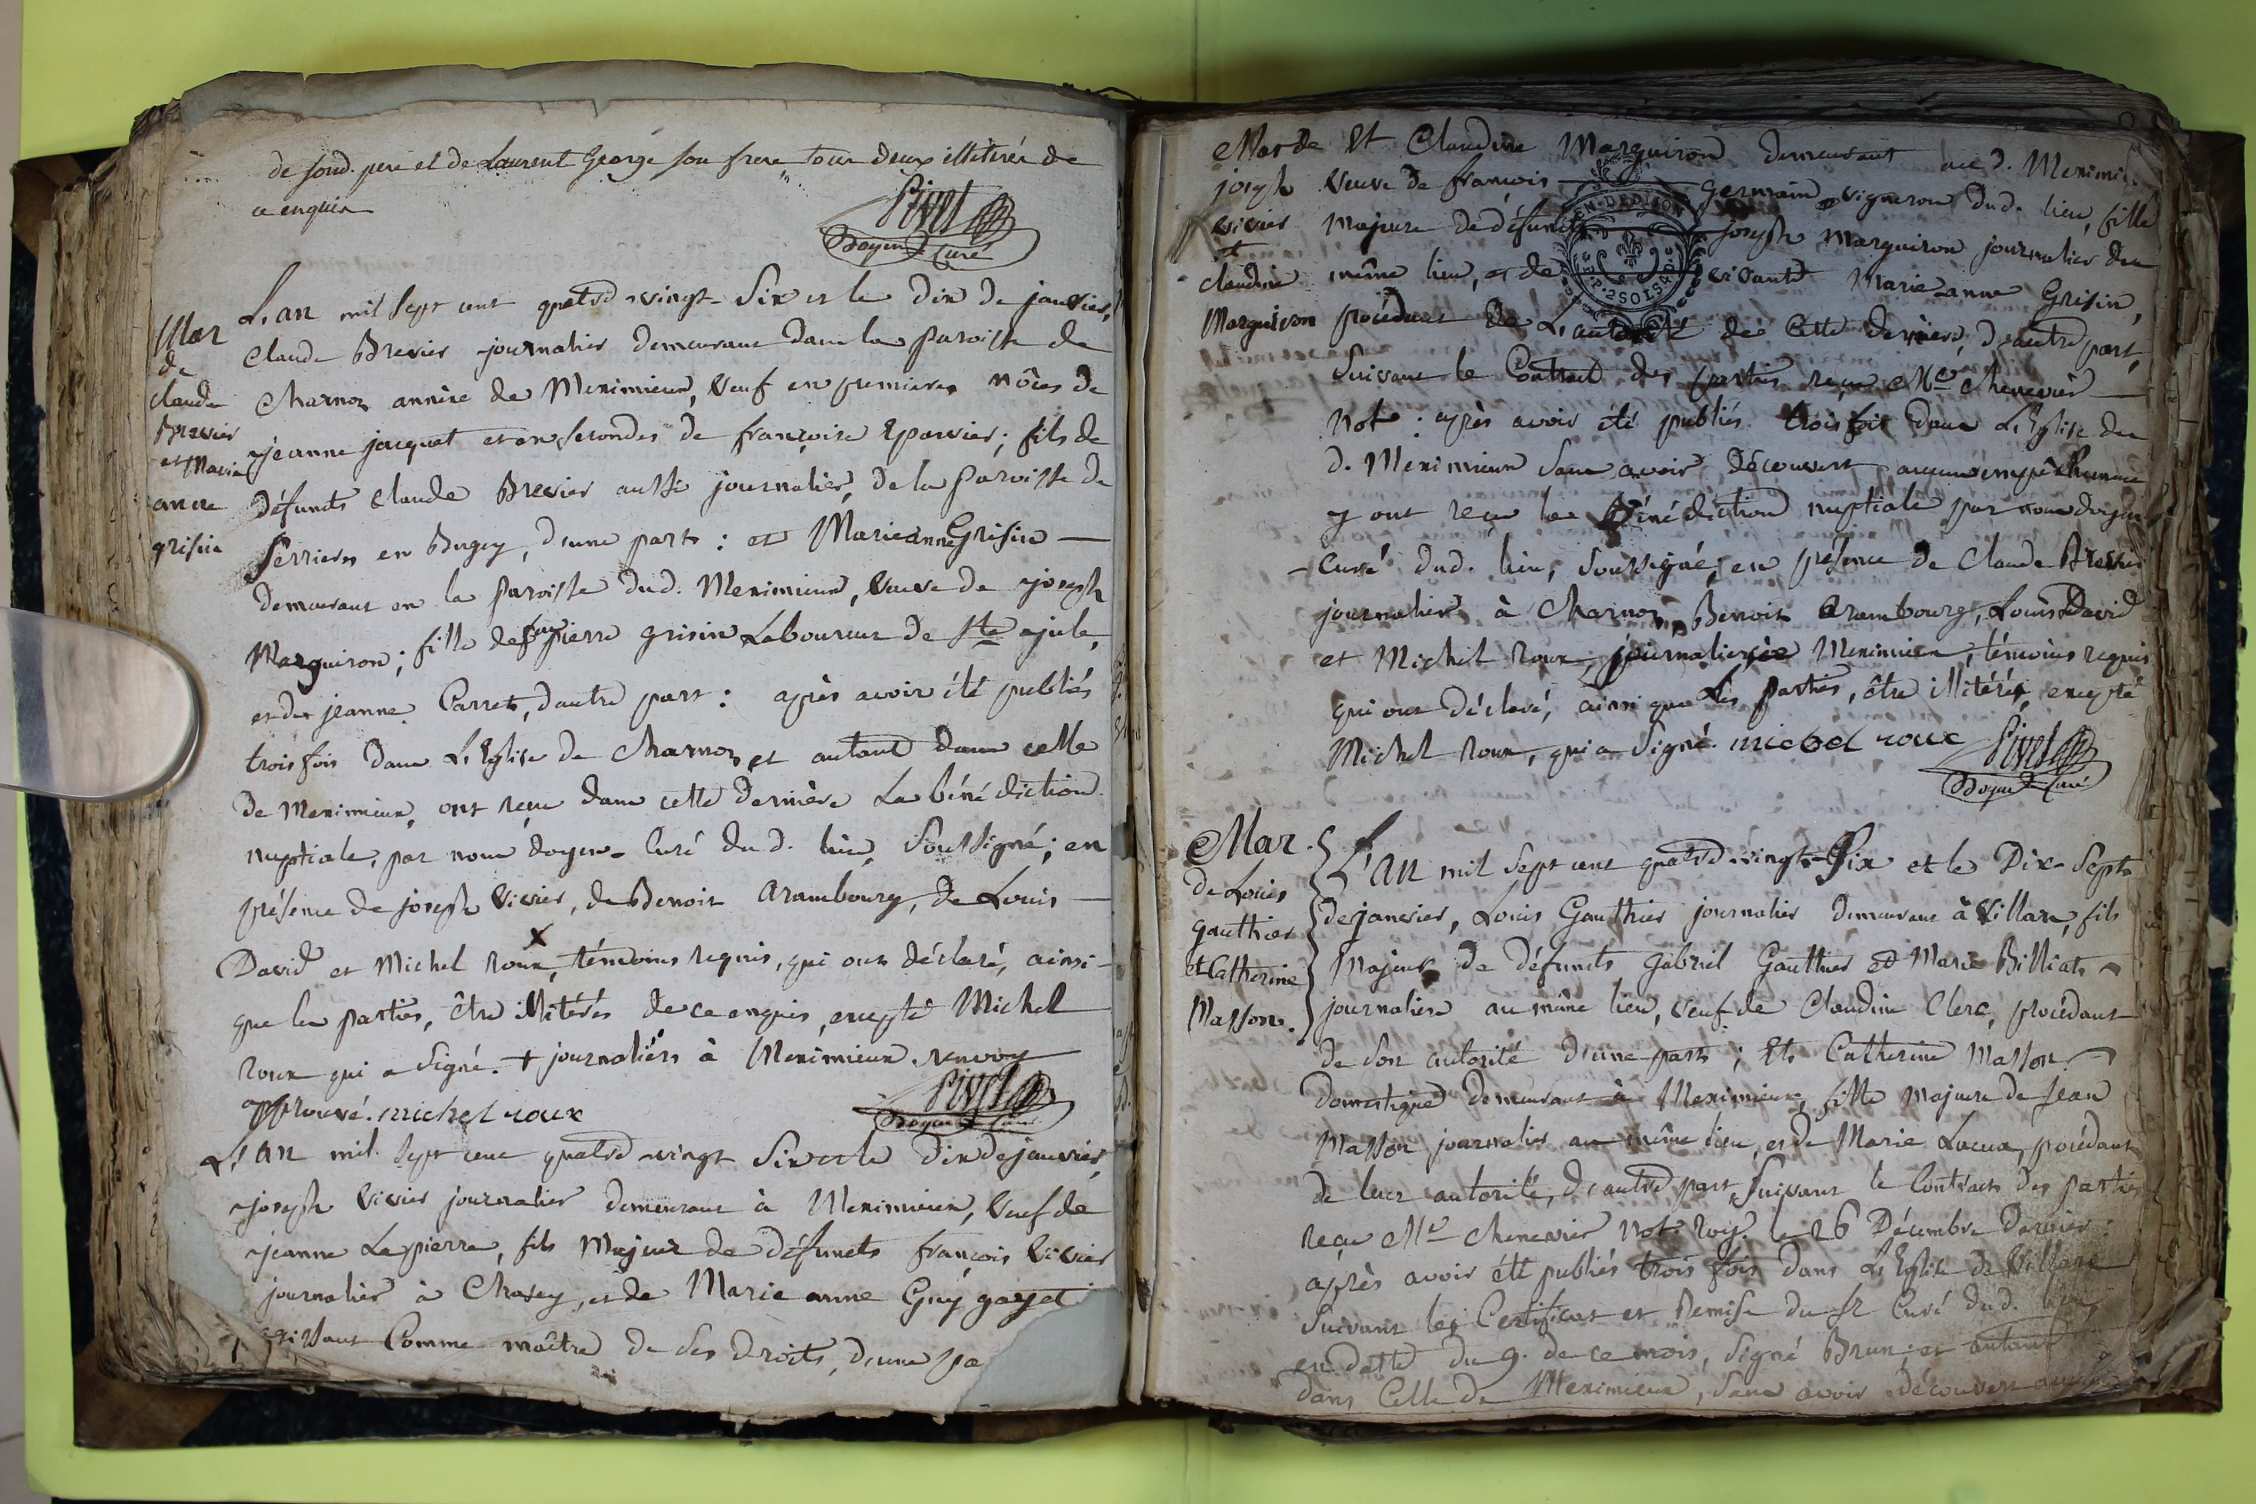 de sond. pere et de Laurent George son frere tous deux illitérés de
ce enquis
Pivet
Doyen Curé
Mar
de
claude
Brevier
et Marie
anne
grisin
L'an mil sept cent quatre vingt Six et le dix de janvier,
Claude Brevier journalier demeurant dans la paroisse de
Charnoz annexe de Meximieux, veuf en premieres nôces de
jeanne jacquet et en secondes de françoise Eparvier; fils de
défunts claude Brevier aussi journalier, de la paroisse de
Serrieres en Bugey, d'une part: et Marie anne Grisin
demeurant en la paroisse dud. Meximieux, veuve de joseph
Marguiron; fille de feu pierre grisin Laboureur de Ste jule,
et de jeanne Carret, d'autre part: après avoir été publiés
trois fois dans L'Eglise de Charnoz, et autant dans celle
de Meximieux, ont reçu dans cette dernière La bénédiction
nuptiale, par nous doyen Curé du d. lieu, soussigné; en
présence de joseph vivier, de Benoit arambourg, de Louis
David et Michel Roux, x témoins requis, qui ont déclaré, ainsi
que les parties, être illitérés de ce enquis, excepté Michel
Roux qui a signé. + journaliers à Meximieux. renvoy
approuvé. michel roux
Pivet
Doyen Curé
L'an mil sept cent quatre vingt Six et le dix de janvier,
joseph vivier journalier demeurant à Meximieux, veuf de
jeanne Lapierre, fils majeur de défunts françois vivier
journalier à Chasey, et de Marie anne Guy gayet
agissant Comme maître de ses droits, d'une pa
Mar de
joseph
vivier
et
claudine
Marguiron
Et Claudine Marguiron demeurant au d. Meximi
veuve de françois Germain vigneron dud. lieu, fille
majeure de défunt joseph Marguiron journalier du
même lieu, et de vivante Marie anne Grisin,
procédant de L'autorité de cette derniere, d'autre part,
suivant le Contrat des parties reçu Me Chenevier
Not: après avoir été publiés trois fois dans L'Eglise du
d. Meximieux sans avoir découvert aucun empêchement
y ont reçu la Bénédiction nuptiale par nous doyen
Curé dud. lieu, soussigné, en présence de Claude Brevier
journalier à Charnoz, Benoit arambourg, Louis David
et Michel Roux, journaliers à Meximieux, témoins requis
qui ont déclaré, ainsi que les parties, être illitérés, excepté
Michel Roux, qui a signé. michel roux
Pivet
Doyen Curé
Mar.
de Louis
gauthier
et Catherine
Masson.
L'an mil sept cent quatre vingt Six et le Dix Sept
de janvier, Louis Gauthier journalier demeurant à Villars, fils
Majeur de défunts Gabriel Gauthier et Marie Billiat
journaliers au même lieu, veuf de Claudine Clerc, procédant
de son autorité d'une part; Et Catherine Masson
domestique demeurant à Meximieux, fille majeure de Jean
Masson journalier au même lieu, et de Marie Lacua, procédant
de leur autorité, d'autre part, suivant le Contract des parties
reçu Me Chenevier Not. Roy. le 26 Décembre dernier:
après avoir été publiés trois fois dans L'Eglise de Villars
suivant les Certificat et Remise du Sr Curé dud. lieu
en datte du 9. de ce mois, signé Brun; et autant
dans Celle de Meximieux, sans avoir découvert aucun